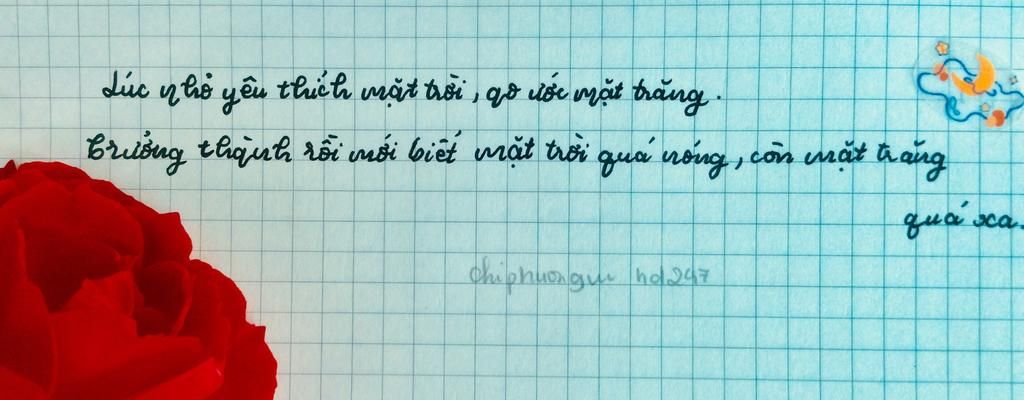 Lúc nhỏ yêu thích mặt trời, qơ ước mặt trăng.
Trưởng thành rồi mới biết mặt trời quá nóng, còn mặt trăng
quá xa.
chiphuongvu hd247